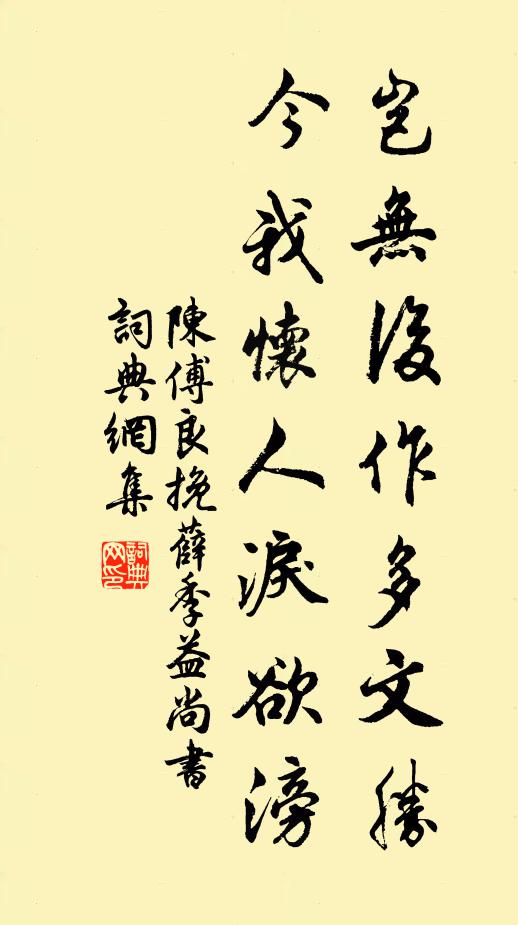 豈無後作多文勝
今我懷人淚欲滂
陳傅良挽薛季益尚書
詞典網集
詞典
网印